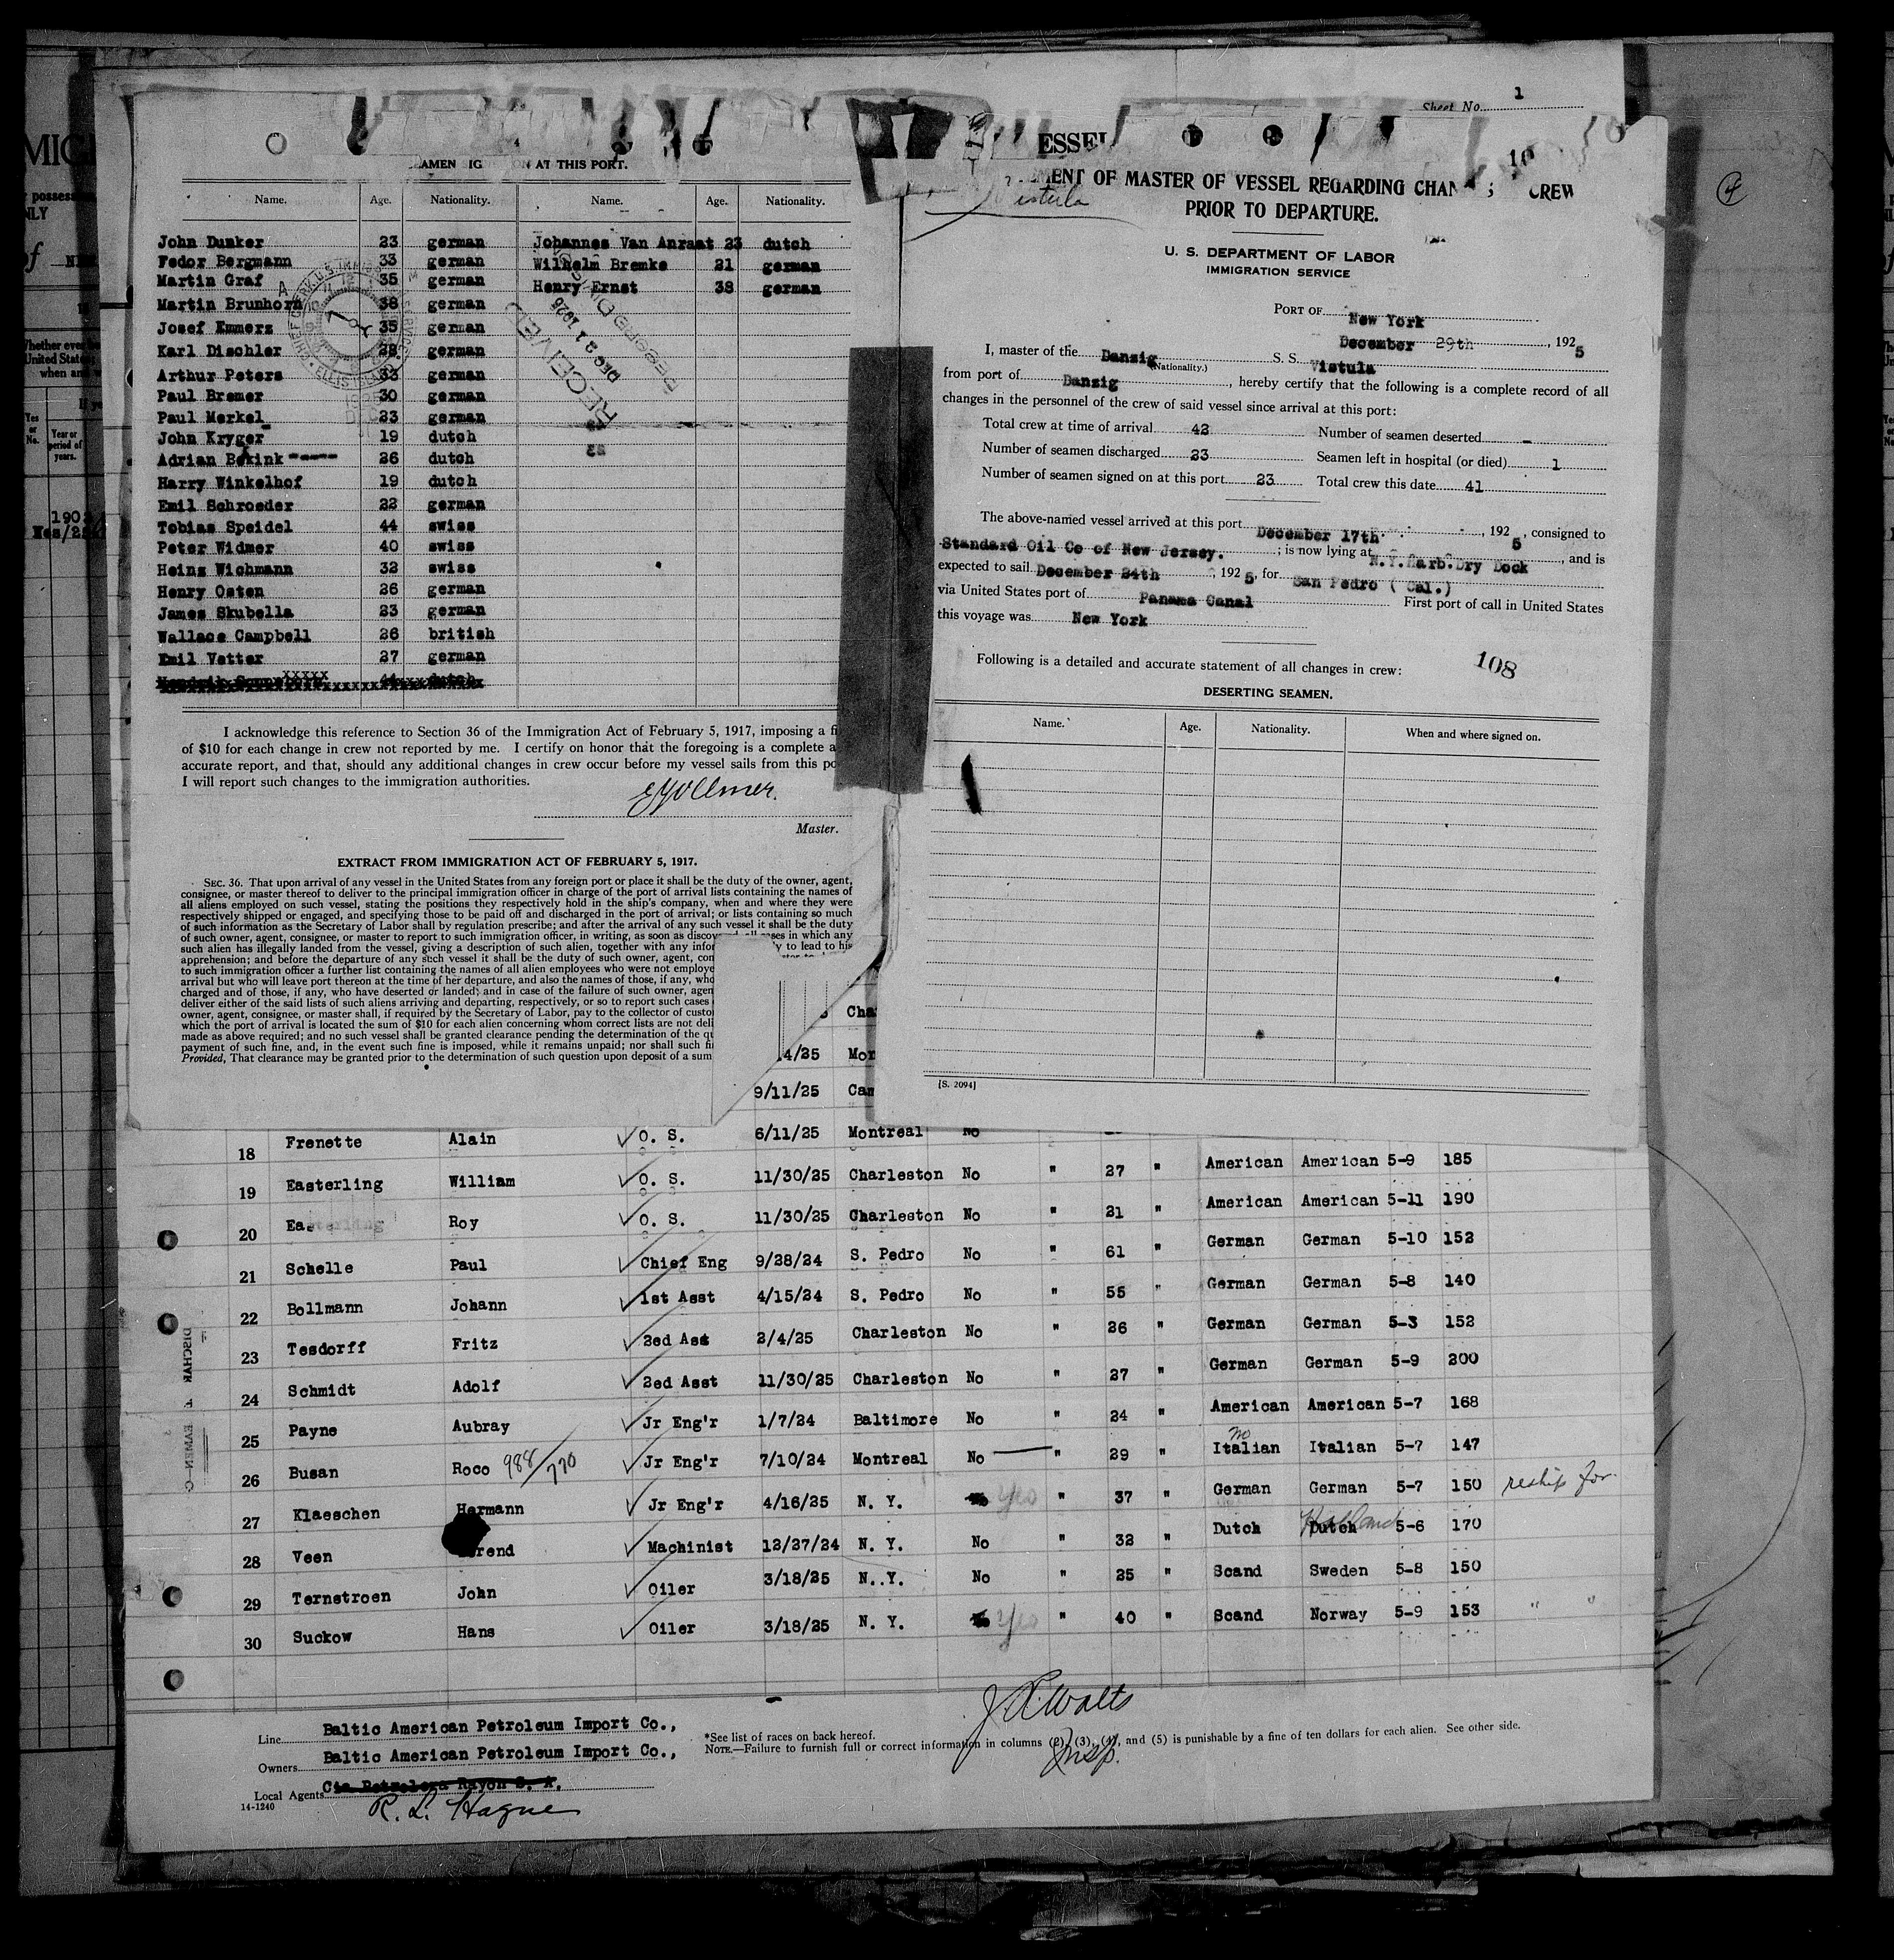 Sheet No. 1
AMEN IG ON AT THIS PORT.
Name. Age. Nationality. Name. Age. Nationality.
John Dunker 23 german Johannes Van Anraat 23 dutch
Fedor Bergmann 33 german Wilhelm Bremke 21 german
Martin Graf 35 german Henry Ernst 38 german
Martin Brunhorn 38 german
Josef Emmerz 35 german
Karl Dischler 28 german
Arthur Peters 33 german
Paul Bremer 30 german
Paul Merkel 23 german
John Kryger 19 dutch
Adrian Bekink 26 dutch
Harry Winkelhof 19 dutch
Emil Schroeder 22 german
Tobias Speidel 44 swiss
Peter Widmer 40 swiss
Heinz Wichmann 32 swiss
Henry Osten 26 german
James Skubella 23 german
Wallace Campbell 26 british
Emil Vetter 27 german
RECEIVED
DEC 21 1925
I acknowledge this reference to Section 36 of the Immigration Act of February 5, 1917, imposing a fi
of $10 for each change in crew not reported by me. I certify on honor that the foregoing is a complete a
accurate report, and that, should any additional changes in crew occur before my vessel sails from this po
I will report such changes to the immigration authorities.
EVollmer.
Master.
EXTRACT FROM IMMIGRATION ACT OF FEBRUARY 5, 1917.
SEC. 36. That upon arrival of any vessel in the United States from any foreign port or place it shall be the duty of the owner, agent,
consignee, or master thereof to deliver to the principal immigration officer in charge of the port of arrival lists containing the names of
all aliens employed on such vessel, stating the positions they respectively hold in the ship's company, when and where they were
respectively shipped or engaged, and specifying those to be paid off and discharged in the port of arrival; or lists containing so much
of such information as the Secretary of Labor shall by regulation prescribe; and after the arrival of any such vessel it shall be the duty
of such owner, agent, consignee, or master to report to such immigration officer, in writing, as soon as discovered, all cases in which any
such alien has illegally landed from the vessel, giving a description of such alien, together with any infor y to lead to his
apprehension; and before the departure of any such vessel it shall be the duty of such owner, agent, con
to such immigration officer a further list containing the names of all alien employees who were not employe
arrival but who will leave port thereon at the time of her departure, and also the names of those, if any, who
charged and of those, if any, who have deserted or landed; and in case of the failure of such owner, agen
deliver either of the said lists of such aliens arriving and departing, respectively, or so to report such cases
owner, agent, consignee, or master shall, if required by the Secretary of Labor, pay to the collector of custo
which the port of arrival is located the sum of $10 for each alien concerning whom correct lists are not deli
made as above required; and no such vessel shall be granted clearance pending the determination of the qu
payment of such fine, and, in the event such fine is imposed, while it remains unpaid; nor shall such fi
Provided, That clearance may be granted prior to the determination of such question upon deposit of a sum
ESSEL
10
MENT OF MASTER OF VESSEL REGARDING CHAN S CREW
PRIOR TO DEPARTURE.
U. S. DEPARTMENT OF LABOR
IMMIGRATION SERVICE
PORT OF New York
December 29th, 1925
I, master of the Danzig (Nationality.) S. S. Vistula
from port of Danzig, hereby certify that the following is a complete record of all
changes in the personnel of the crew of said vessel since arrival at this port:
Total crew at time of arrival 42 Number of seamen deserted -
Number of seamen discharged 23 Seamen left in hospital (or died) 1
Number of seamen signed on at this port 23 Total crew this date 41
The above-named vessel arrived at this port December 17th, 1925, consigned to
Standard Oil Co of New Jersey.; is now lying at N.Y.Harb.Dry Dock, and is
expected to sail December 24th, 1925, for San Pedro ( Cal.)
via United States port of Panama Canal First port of call in United States
this voyage was New York
Following is a detailed and accurate statement of all changes in crew: 108
DESERTING SEAMEN.
Name. Age. Nationality. When and where signed on.
[S. 2094]
Cha
4/25 Mon
9/11/25 Cam
18 Frenette Alain O. S. 6/11/25 Montreal No
19 Easterling William O. S. 11/30/25 Charleston No " 27 " American American 5-9 185
20 Easterling Roy O. S. 11/30/25 Charleston No " 21 " American American 5-11 190
21 Schelle Paul Chief Eng 9/28/24 S. Pedro No " 61 " German German 5-10 152
22 Bollmann Johann 1st Asst 4/15/24 S. Pedro No " 55 " German German 5-8 140
23 Tesdorff Fritz 2ed Ast 2/4/25 Charleston No " 26 " German German 5-3 152
24 Schmidt Adolf 2ed Asst 11/30/25 Charleston No " 27 " German German 5-9 200
25 Payne Aubray Jr Eng'r 1/7/24 Baltimore No " 24 " American American 5-7 168
26 Busan Roco 988/770 Jr Eng'r 7/10/24 Montreal No " 29 " Italian Italian 5-7 147
27 Klaeschen Hermann Jr Eng'r 4/16/25 N. Y. Yes " 37 " German German 5-7 150 reship for
28 Veen rend Machinist 12/27/24 N. Y. No " 32 " Dutch Dutch Holland 5-6 170
29 Ternstroen John Oiler 3/18/25 N. Y. No " 25 " Scand Sweden 5-8 150
30 Suckow Hans Oiler 3/18/25 N. Y. Yes " 40 " Scand Norway 5-9 153 " "
Line Baltic American Petroleum Import Co.,
Owners Baltic American Petroleum Import Co.,
Local Agents Cia Petrolera Rayon S. A.
R. L. Hague
14-1240
*See list of races on back hereof.
NOTE.—Failure to furnish full or correct information in columns (2), (3), (4), and (5) is punishable by a fine of ten dollars for each alien. See other side.
J. A. Watts
Insp.